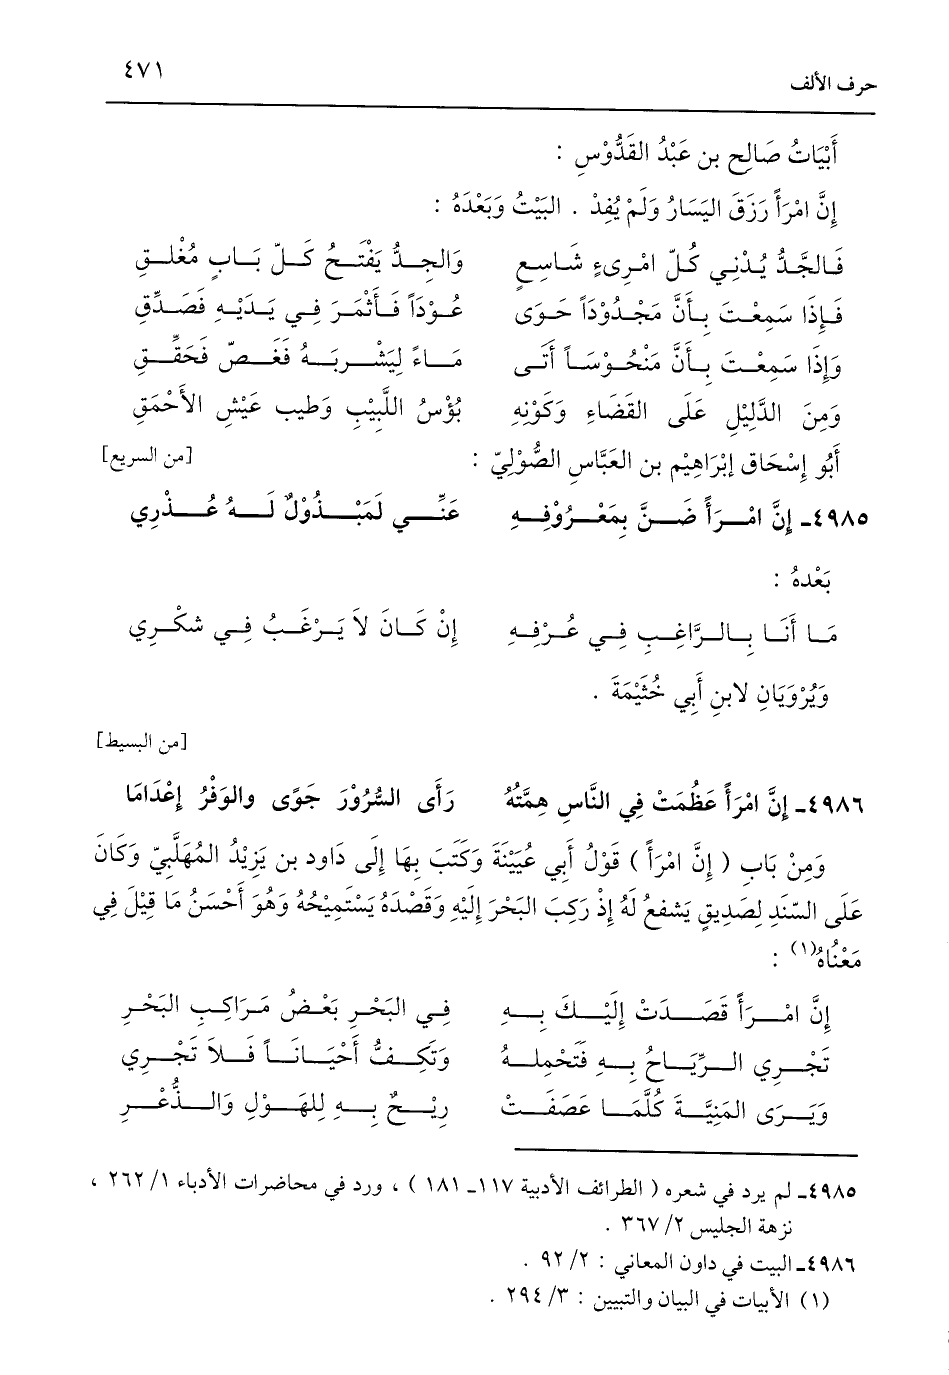 حرف الألف ٤٧١
أَبْيَاتُ صَالِحِ بن عَبْدُ القَدُّوْسِ :
إِنَّ امْرَأً رَزَقَ اليَسَارُ وَلَمْ يُفِدْ . البَيْتُ وَبَعْدَهُ :
فَالجَدُّ يُدْنِي كُلّ امْرِىءٍ شَاسِعٍ وَالجِدُّ يَفْتَحُ كَلّ بَابٍ مُغْلَقِ
فَإِذَا سَمِعْتَ بِأَنَّ مَجْدُوْدَاً حَوَى عُوْدَاً فَأَثْمَرَ فِي يَدَيْهِ فَصَدِّقِ
وَإِذَا سَمِعْتَ بِأَنَّ مَنْحُوْسَاً أَتَى مَاءً لِيَشْرِبَهُ فَغَصّ فَحَقِّقِ
وَمِنَ الدَّلِيْلِ عَلَى القَضَاءِ وَكَوْنِهِ بُؤْسُ اللَّبِيْبِ وَطِيبِ عَيْشِ الأَحْمَقِ
أَبُو إِسْحَاق إِبْرَاهِيْم بن العَبَّاسِ الصُّوْلِيّ : [من السريع]
٤٩٨٥ـ إِنَّ امْرَأً ضَنَّ بِمَعْرُوْفِهِ عَنِّي لَمَبْذُوْلٌ لَهُ عُذْرِي
بَعْدهُ :
مَا أَنَا بِالرَّاغِبِ فِي عُرْفِهِ إِنْ كَانَ لاَ يَرْغَبُ فِي شكْرِي
وَيُرْوَيَانِ لابنِ أَبِي خُثَيْمَةَ .
[من البسيط]
٤٩٨٦ـ إِنَّ امْرَأً عَظُمَتْ فِي النَّاسِ هِمَّتُهُ رَأَى السُّرُوْرَ جَوًى والوَفْرُ إِعْدَامَا
وَمِنْ بَابِ ( إِنَّ امْرَأً ) قَوْلُ أَبِي عُيَيْنَةَ وَكَتَبَ بِهَا إِلَى دَاود بن يَزِيْدُ المُهَلَّبِيّ وَكَانَ
عَلَى السِّنَدِ لِصَدِيقٍ يَشفعُ لَهُ إِذْ رَكِبَ البَحْرَ إِلَيْهِ وَقَصْدَهُ يَسْتَمِيْحُهُ وَهُوَ أَحْسَنُ مَا قِيْلَ فِي
مَعْنَاهُ(١) :
إِنَّ امْرَأً قَصَدَتْ إِلَيْكَ بِهِ فِي البَحْرِ بَعْضُ مَرَاكِبِ البَحْرِ
تَجْرِي الرِّيَاحُ بِهِ فَتَحْمِلهُ وَتَكفُّ أَحْيَانَاً فَلاَ تَجْرِي
وَيَرَى المَنِيَّةَ كُلَّمَا عَصَفَتْ رِيْحٌ بِهِ لِلهَوْلِ وَالذُّعْرِ
٤٩٨٥ـ لم يرد في شعره ( الطرائف الأدبية ١١٧ـ ١٨١ ) ، ورد في محاضرات الأدباء ١/ ٢٦٢ ،
نزهة الجليس ٢/ ٣٦٧ .
٤٩٨٦ـ البيت في داون المعاني : ٢/ ٩٢ .
(١) الأبيات في البيان والتبيين : ٣/ ٢٩٤ .